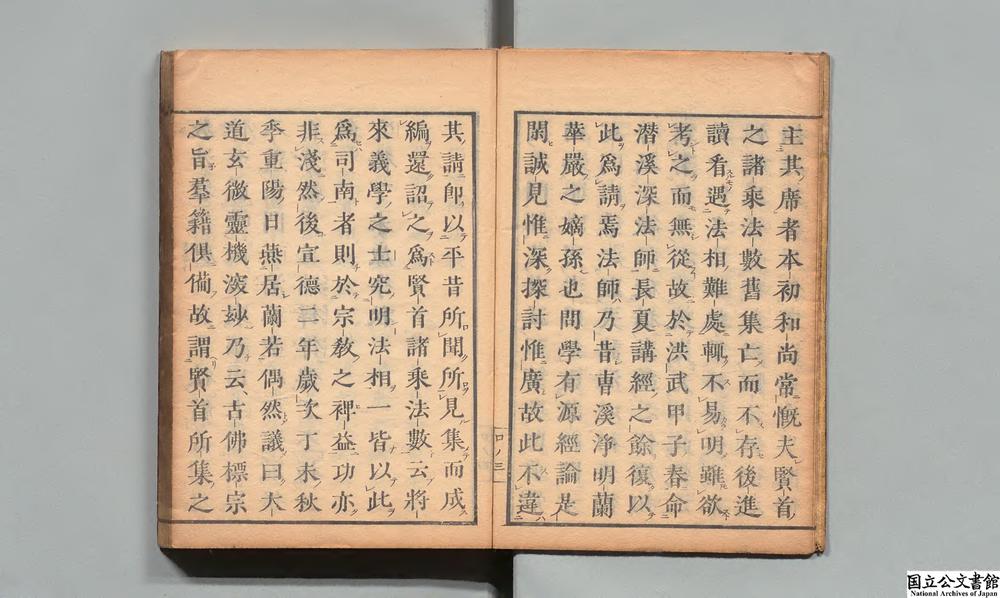 主其席者本初和尚常慨夫賢首
之諸乘法數舊集亡而不存後進
讀看遇法相難處輙不易明雖欲
考之而無從故於洪武甲子春命
潜溪深法師長夏講經之餘復以
此爲請焉法師乃昔曺溪淨明蘭
華嚴之嫡孫也問學有源經論是
閑誠見惟深探討惟廣故此不違
其請卽以平昔所聞所見集而成
編還詔之爲賢首諸乘法數云將
來義學之士究明法相一皆以此
爲司南者則於宗敎之裨益功亦
非淺然後宣德三年歲次丁未秋
季重陽日燕居蘭若偶然議曰大
道玄微靈機深玅乃云古佛標宗
之旨羣籍俱備故謂賢首所集之
国立公文書館
National Archives of Japan